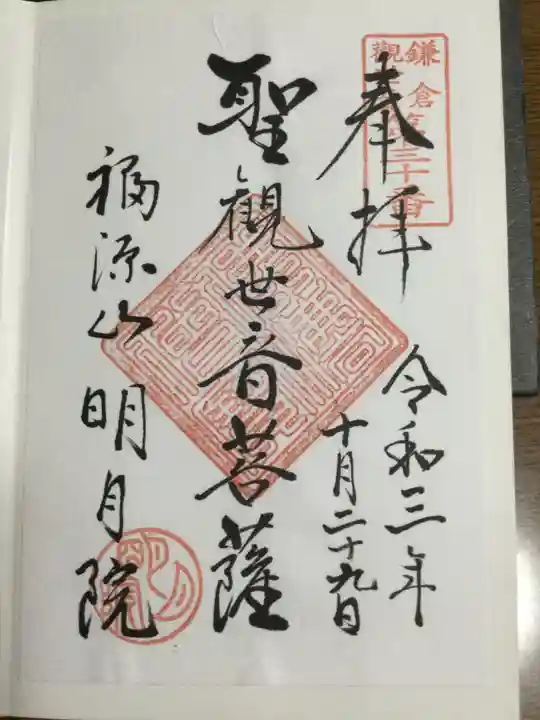 鎌倉
觀
第三十番
奉拝
令和三年
十月二十九日
聖觀世音菩薩
福源山明月院